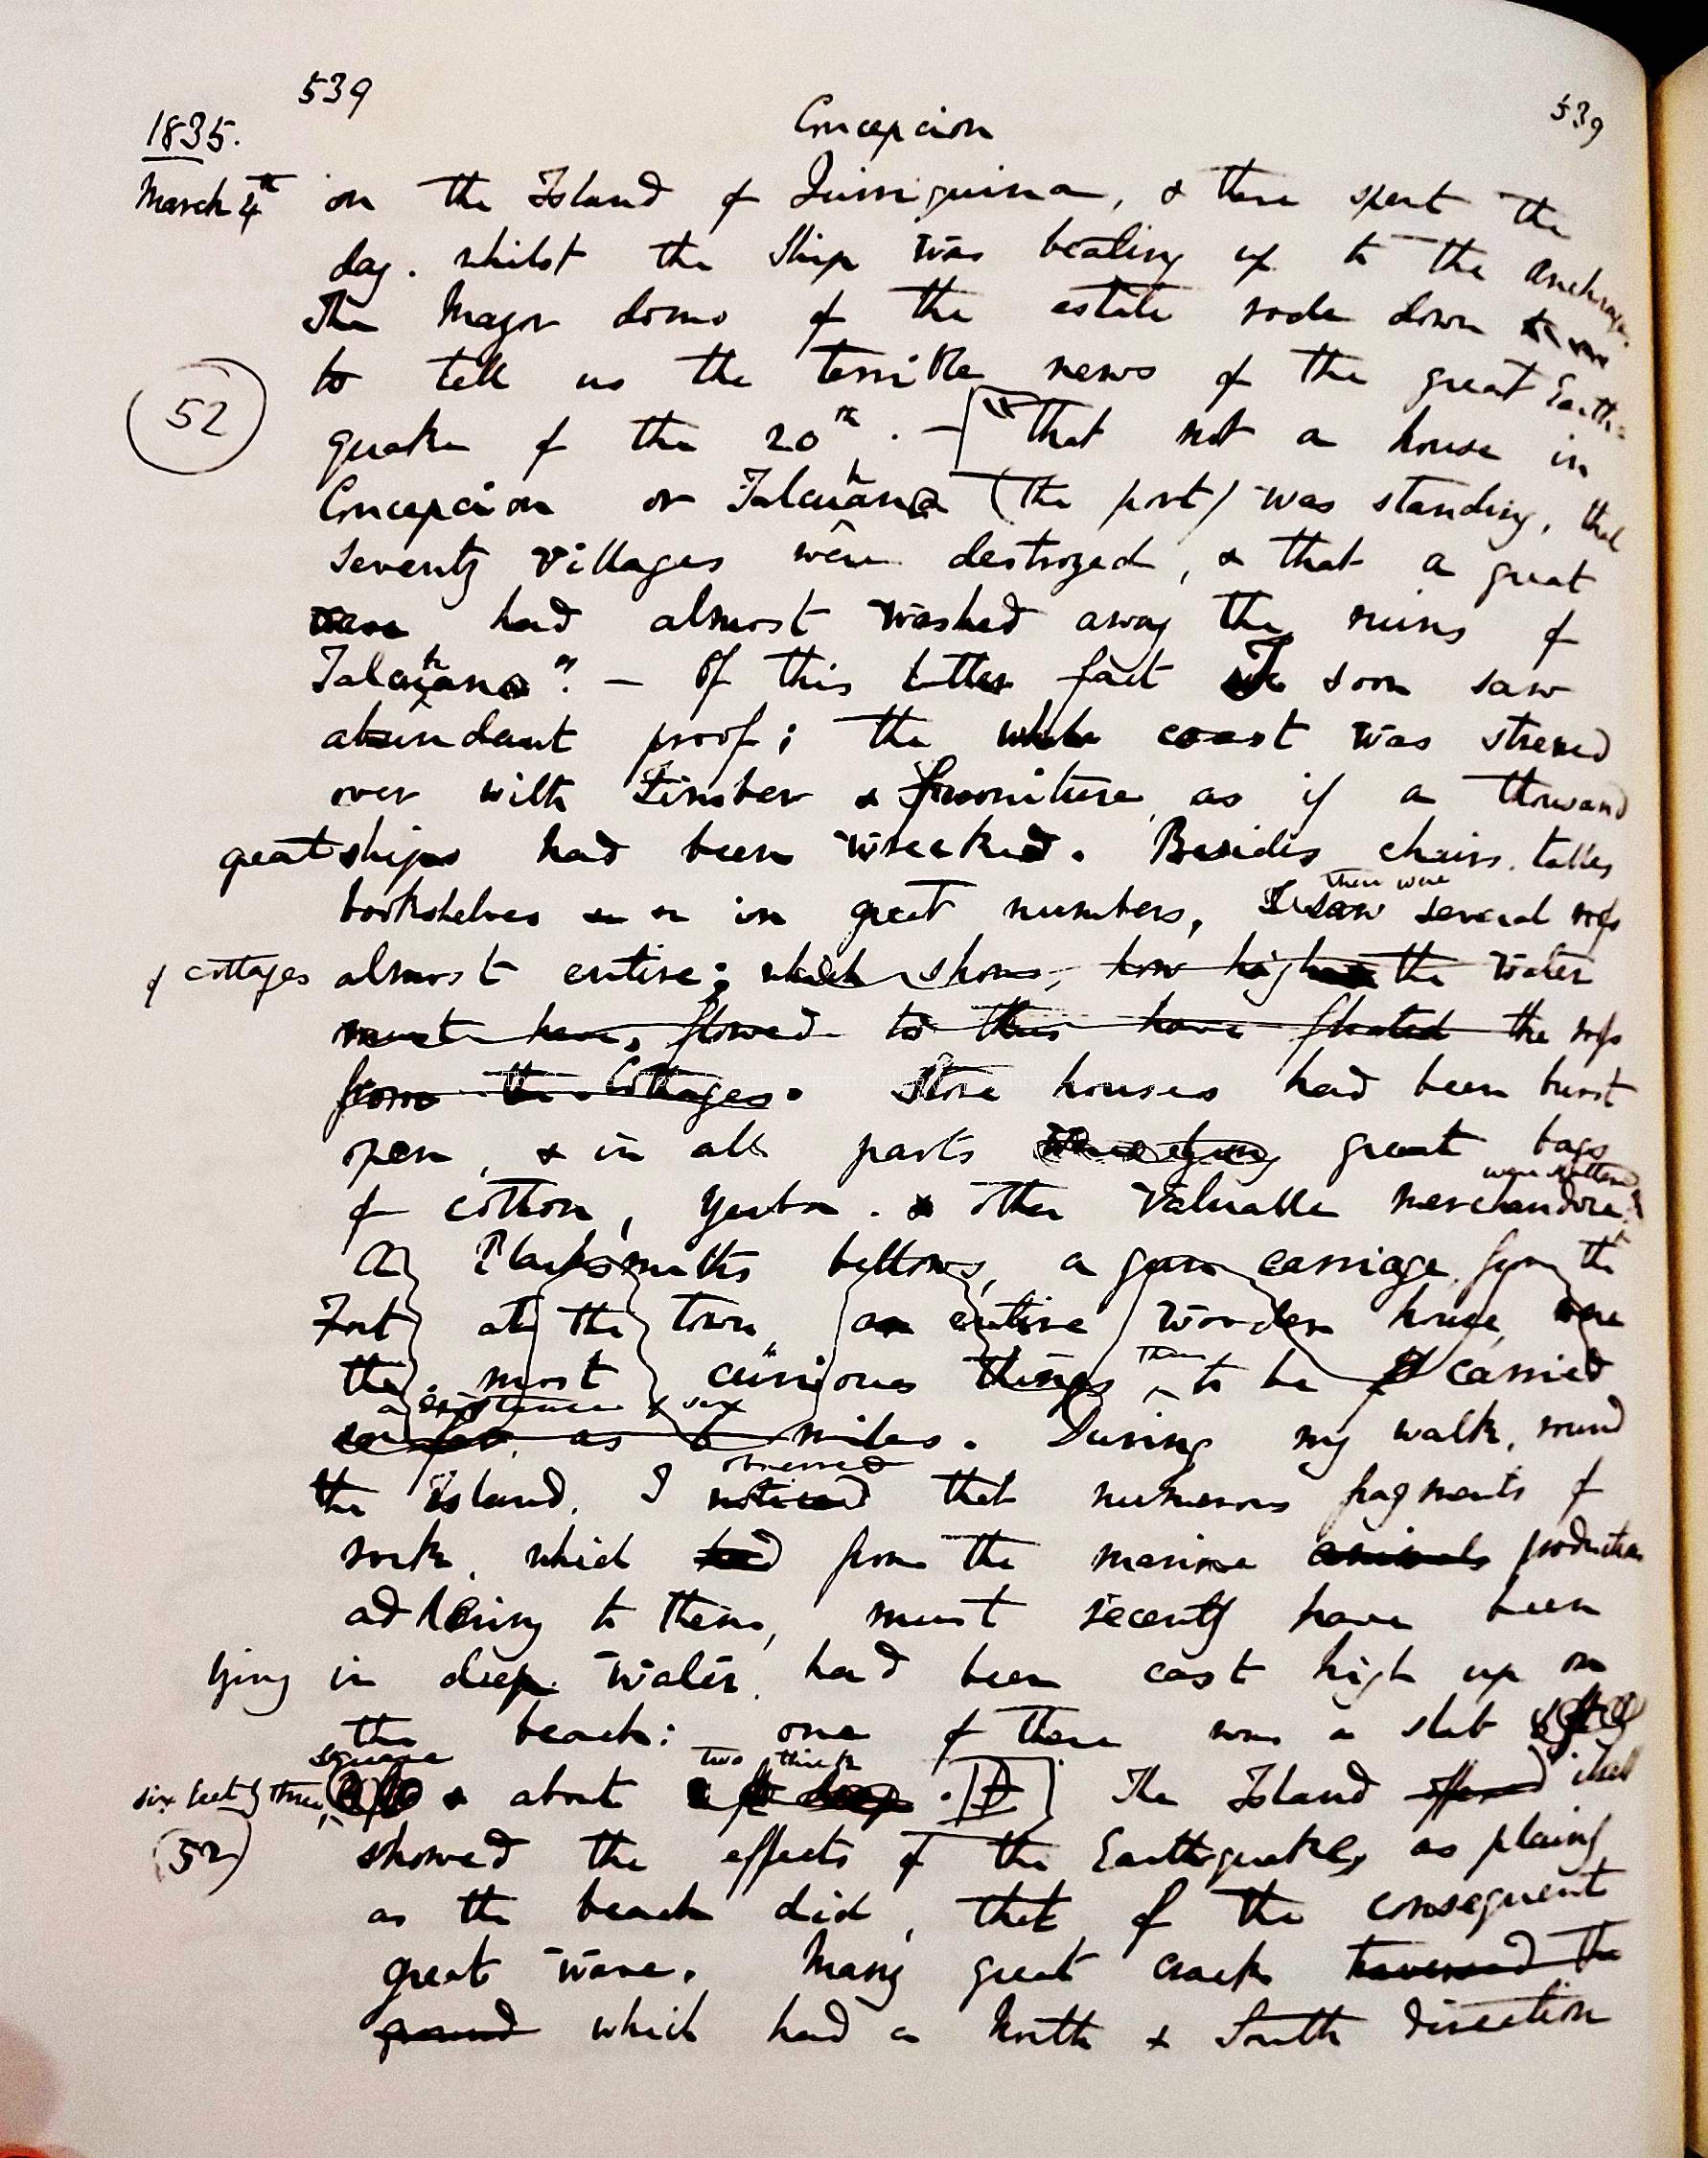 539
Concepcion
539
1835.
March 4th on the Island of Quiriquina, & there spent the
day. whilst the Ship was beating up to the anchorage.
The Major domo of the estate rode down
to tell us the terrible news of the great Earth=
52
quake of the 20th. — ["That not a house in
Concepcion or Talcuhana (the port) was standing, that
seventy villages were destroyed, & that a great
wave had almost washed away the ruins of
Talcuhana". — Of this latter fact I soon saw
abundant proof; the whole coast was strewed
over with timber & furniture as if a thousand
great ships had been wrecked. Besides chairs, tables
bookshelves &c &c in great numbers, I saw several roofs
there were
of cottages almost entire; which shows, how high the water
must have flowed to thus have floated the roofs
from the Cottages. Store houses had been burst
open, & in all parts great bags
of cotton, Yerba. & other valuable merchandise
were scattered
A Blacksmiths bellows, a gun carriage from the
Fort at the town, an entire wooden house, were
the most curious things to be carried
a distance of six
so far as 6 miles. During my walk, round
observed
the Island, I noticed that numerous fragments of
rock, which had from the marine animals productions
adhering to them, must recently have been
lying in deep water, had been cast high up on
the beach: one of these was a slab
square two thick
six feet by three, & about The Island itself
(52)
showed the effects of the Earthquake, as plainly
as the beach did, that of the consequent
great wave. Many great cracks traversed the
ground which had a North & South direction